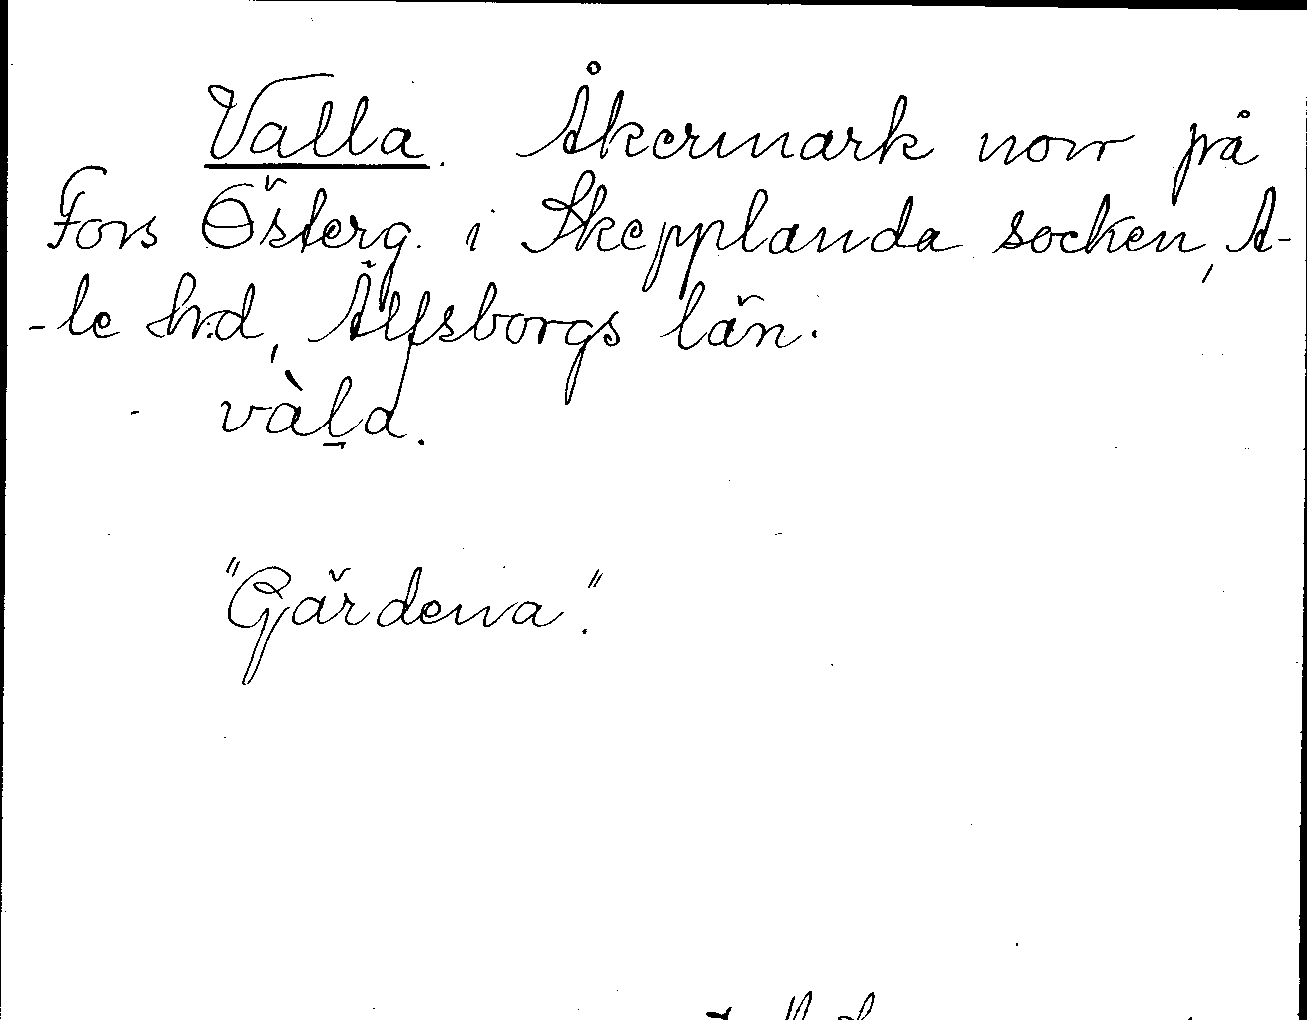 Valla. Åkermark norr på
Fors Österg. i Skepplanda socken, A-
-le hrd, Älfsborgs län.
vàḻa.
"Gärdena."